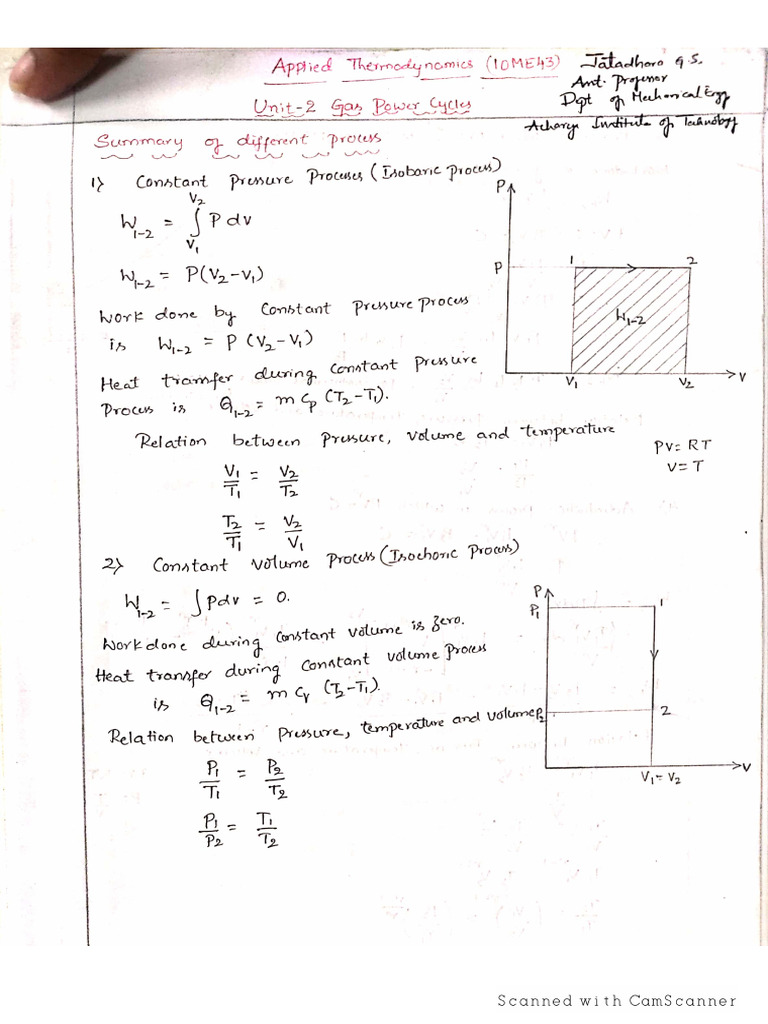 Applied Thermodynamics (10ME43)
Jatadhara G.S.
Asst. Professor
Dept of Mechanical Engg
Acharya Institute of Technology
Unit-2 Gas Power Cycles
Summary of different process
1) Constant Pressure Processes (Isobaric process)
W₁₋₂ = ∫_{V₁}^{V₂} P dv
W₁₋₂ = P(V₂-V₁)
Work done by constant pressure process
is W₁₋₂ = P (V₂-V₁)
Heat transfer during constant pressure
Process is Q₁₋₂ = m Cp (T₂-T₁).
P
P
1
2
W₁₋₂
V₁
V₂
V
Relation between pressure, volume and temperature
PV = RT
V = T
V₁/T₁ = V₂/T₂
T₂/T₁ = V₂/V₁
2) Constant volume Process (Isochoric Process)
W₁₋₂ = ∫Pdv = 0.
Work done during constant volume is zero.
Heat transfer during constant volume process
is Q₁₋₂ = m Cv (T₂-T₁).
Relation between pressure, temperature and volume
P
P₁
1
P₂
2
V₁ = V₂
V
P₁/T₁ = P₂/T₂
P₁/P₂ = T₁/T₂
Scanned with CamScanner